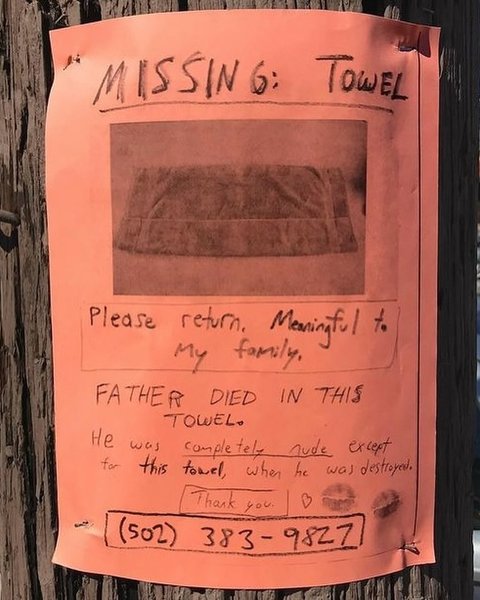 MISSING: TOWEL
Please return. Meaningful to
My family.
FATHER DIED IN THIS
TOWEL.
He was completely nude except
for this towel, when he was destroyed.
Thank you.
(502) 383-9827